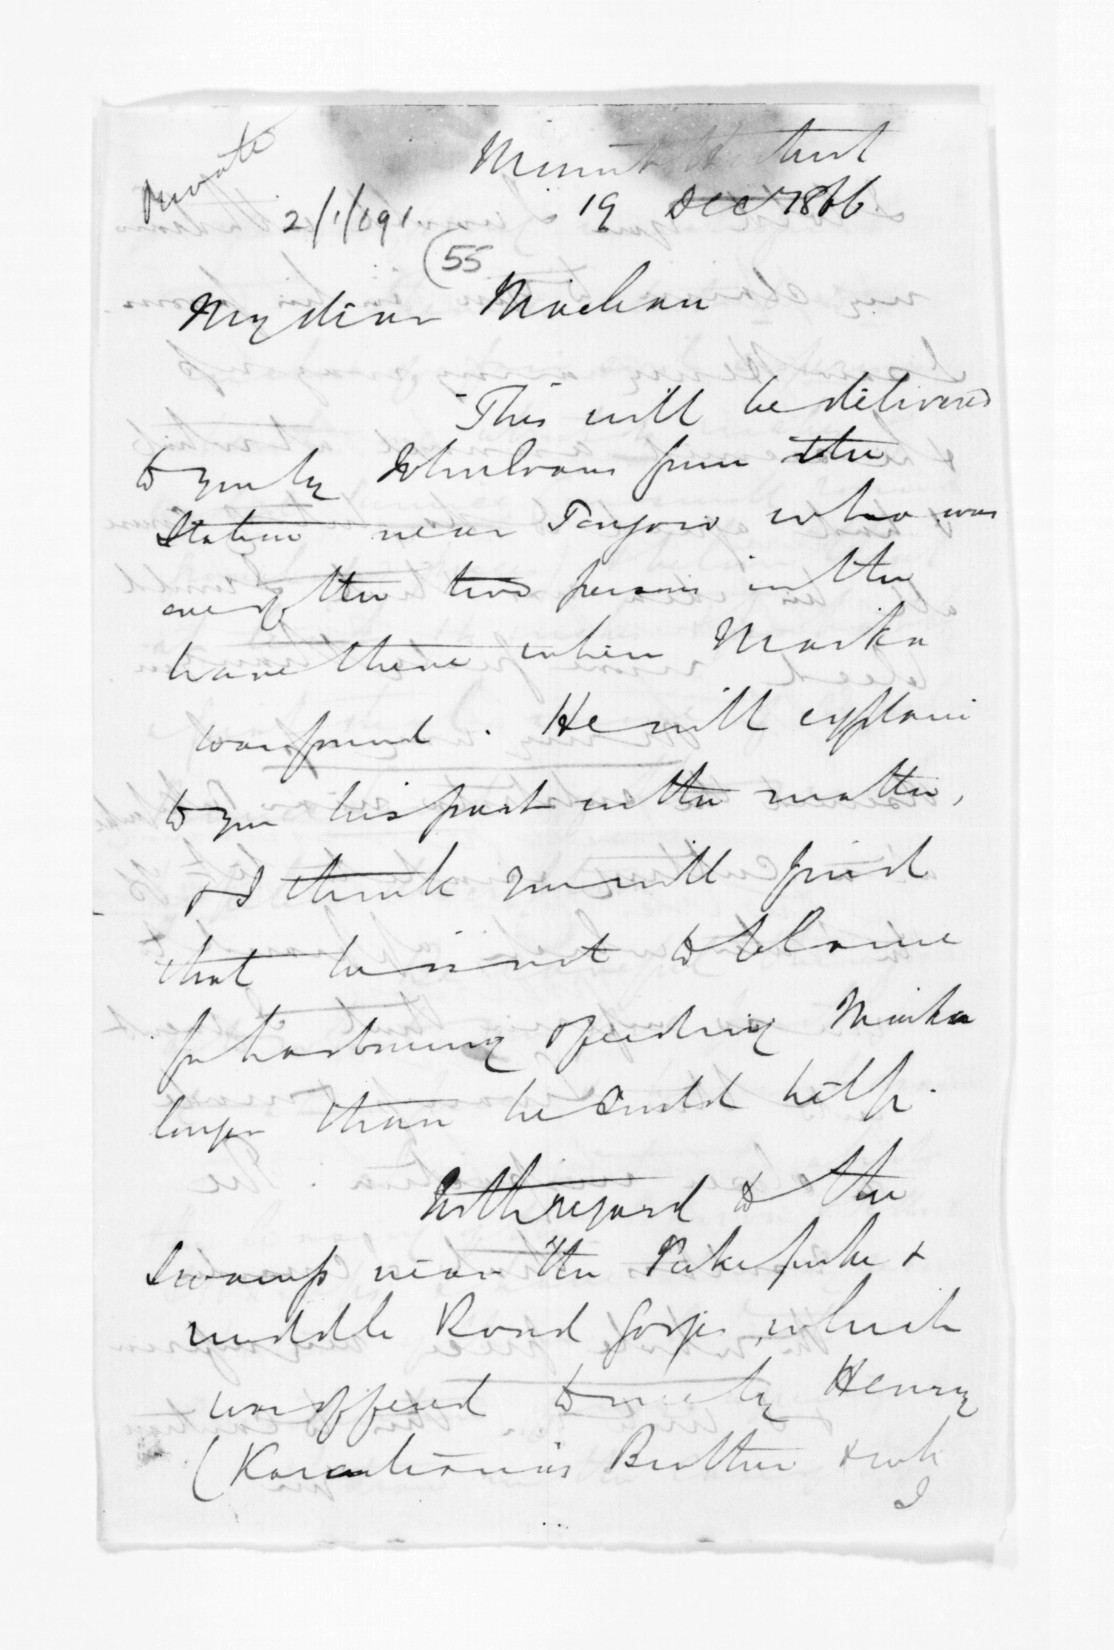 Private
Mount Herbert
19 Decr 1866
2/1/091
55
My dear Maclean
This will be delivered
to you by John Evans from the
Station near Tangoio who was
one of the two persons in the
have there when Maika
was found. He will explain
to you his part in the matter,
& I think you will find
that he is not to blame
for harbouring & feeding Maika
longer than he could help.
With regard to the
Swamp near the Puke puke &
middle Road Gorge, which
was offered to me by Henry
(Karaitiana's Brother & wh
I